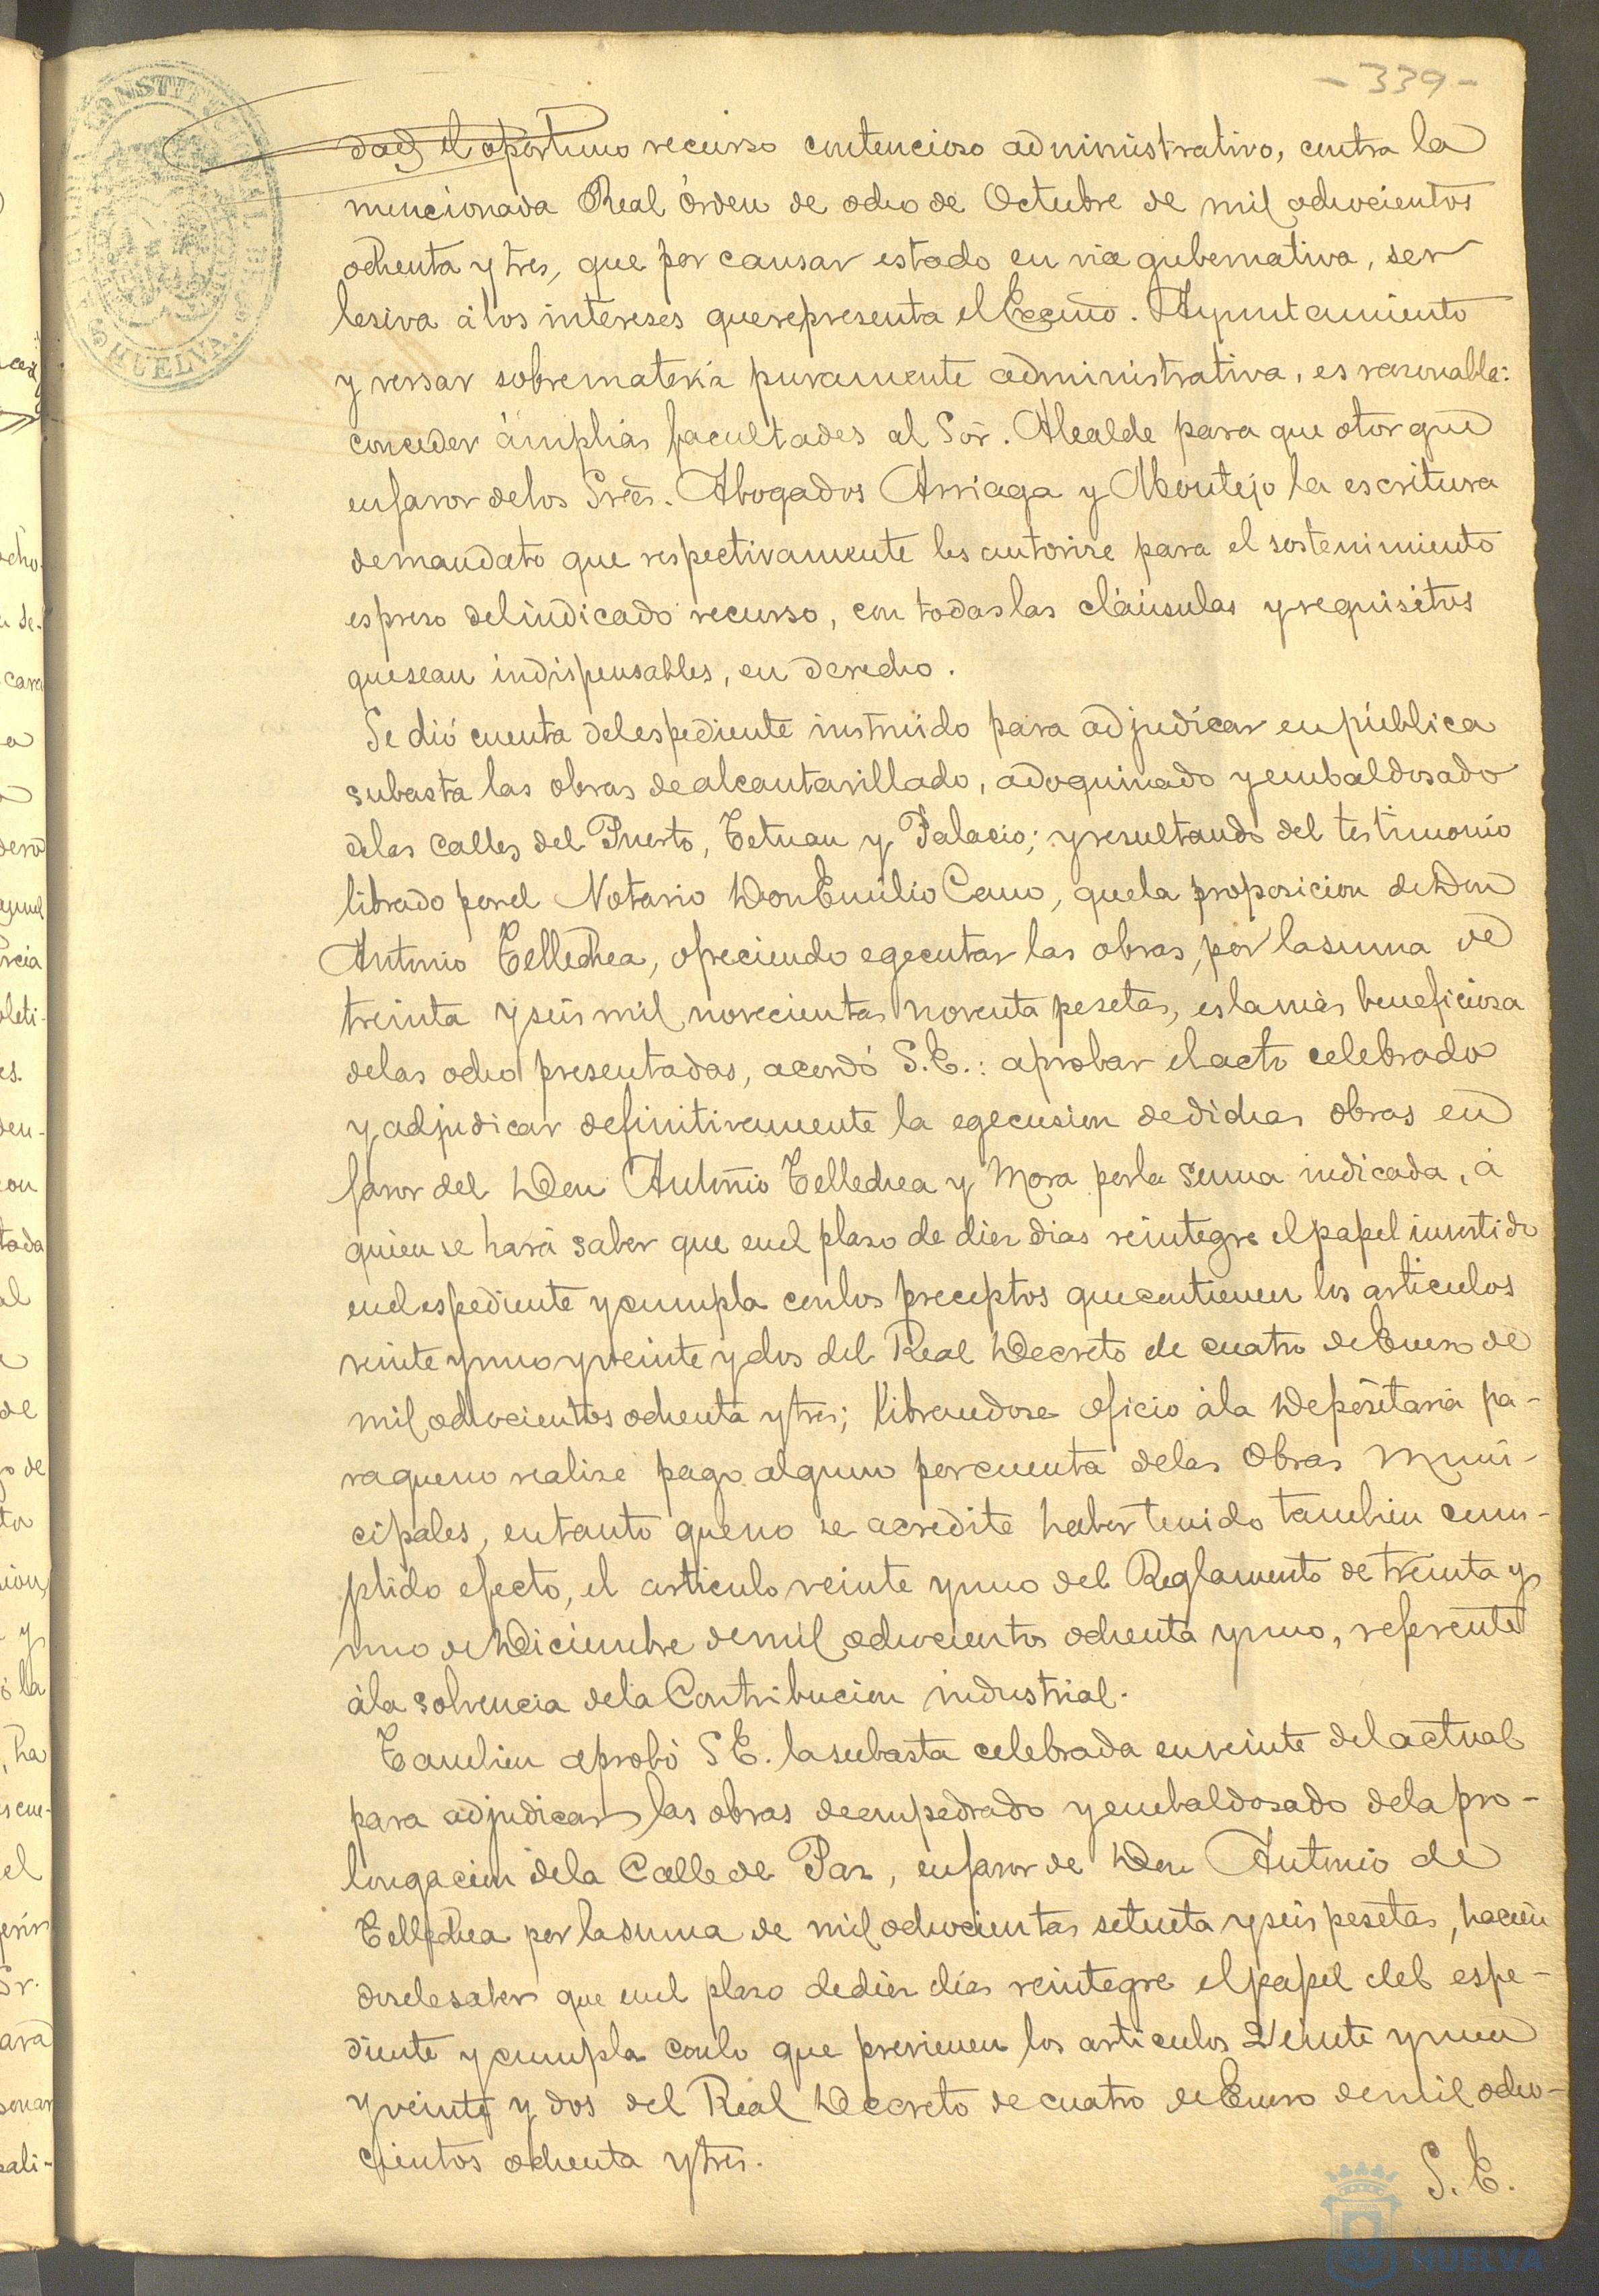 -339-
dad, el oportuno recurso contencioso administrativo, contra la
mencionada Real órden de ocho de Octubre de mil ochocientos
ochenta y tres, que por causar estado en via gubernativa, ser
lesiva á los intereses que representa el Excmo. Ayuntamiento
y versar sobre materia puramente administrativa, es razonable:
conceder ámplias facultades al Sor. Alcalde para que otorgue
en favor de los Sres. Abogados Arriaga y Montejo la escritura
de mandato que respectivamente les autorize para el sostenimiento
espreso del indicado recurso, con todas las cláusulas y requisitos
que sean indispensables, en derecho.
Se dió cuenta del espediente instruido para adjudicar en pública
subasta las obras de alcantarillado, adoquinado y embaldosado
de las calles del Puerto, Tetuan y Palacio; y resultando del testimonio
librado por el Notario Don Emilio Cano, que la proposicion de Don
Antonio Tellechea, ofreciendo egecutar las obras, por la suma de
treinta y seis mil novecientas noventa pesetas, es la más beneficiosa
de las ocho presentadas, acordó S.E.: aprobar el acto celebrado
y adjudicar definitivamente la egecusion de dichas obras en
favor del Don Antonio Tellechea y Mora por la suma indicada, á
quien se hará saber que en el plazo de diez dias reintegre el papel invertido
en el espediente y cumpla con los preceptos que contienen los articulos
veinte y uno y veinte y dos del Real Decreto de cuatro de Enero de
mil ochocientos ochenta y tres; librandose oficio á la Depositaria pa-
ra que no realize pago alguno por cuenta de las Obras Muni-
cipales, en tanto que no se acredite haber tenido tambien cum-
plido efecto, el articulo veinte y uno del Reglamento de treinta y
uno de Diciembre de mil ochocientos ochenta y uno, referente
á la solvencia de la Contribucion industrial.
Tambien aprobó S.E. la subasta celebrada en veinte del actual
para adjudicar las obras de empedrado y embaldosado de la pro-
longacion de la Calle de Paz, en favor de Don Antonio de
Tellechea por la suma de mil ochocientas setenta y seis pesetas, hacien
dosele saber que en el plazo de diez dias reintegre el papel del espe-
diente y cumpla con lo que previenen los articulos Veinte y uno
y veinte y dos del Real Decreto de cuatro de Enero de mil ocho-
cientos ochenta y tres.
S.E.
HUELVA